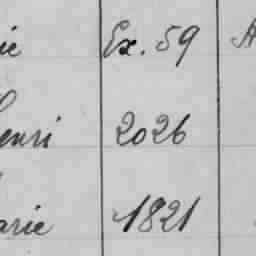 ie Ex. 59 A
enri 2026
arie 1821